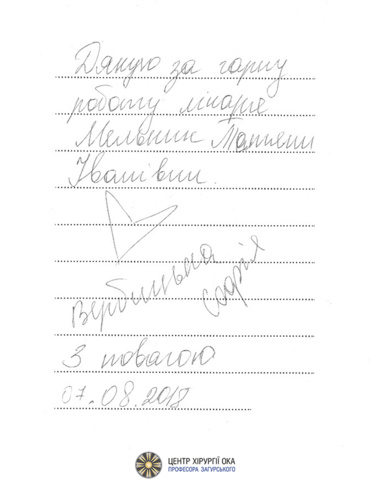 Дякую за гарну
роботу лікаря
Мельник Татяни
Іванівни.
Вербицька
Софія
З повагою
07.08.2018
ЦЕНТР ХІРУРГІЇ ОКА
ПРОФЕСОРА ЗАГУРСЬКОГО